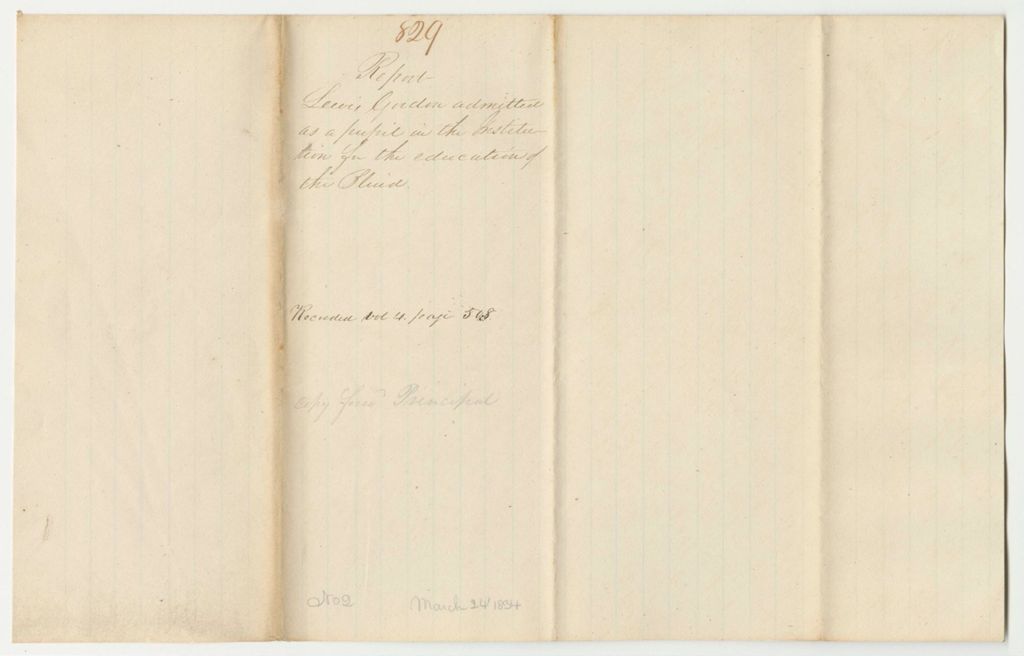 829
Report
Lewis Gordon admitted
as a pupil in the Institu-
tion for the education of
the Blind.
Recorded vol 4. page 568
Copy ford Principal
No 2 March 24 1834